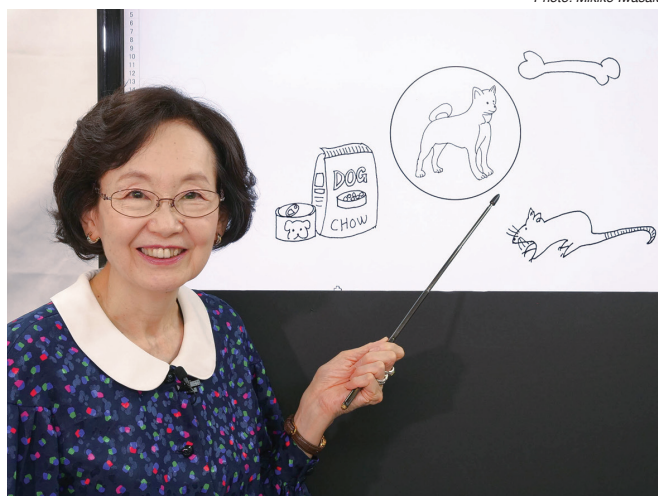 Photo: Mikiko Iwasaki
5
6
7
8
9
10
11
12
13
DOG
CHOW